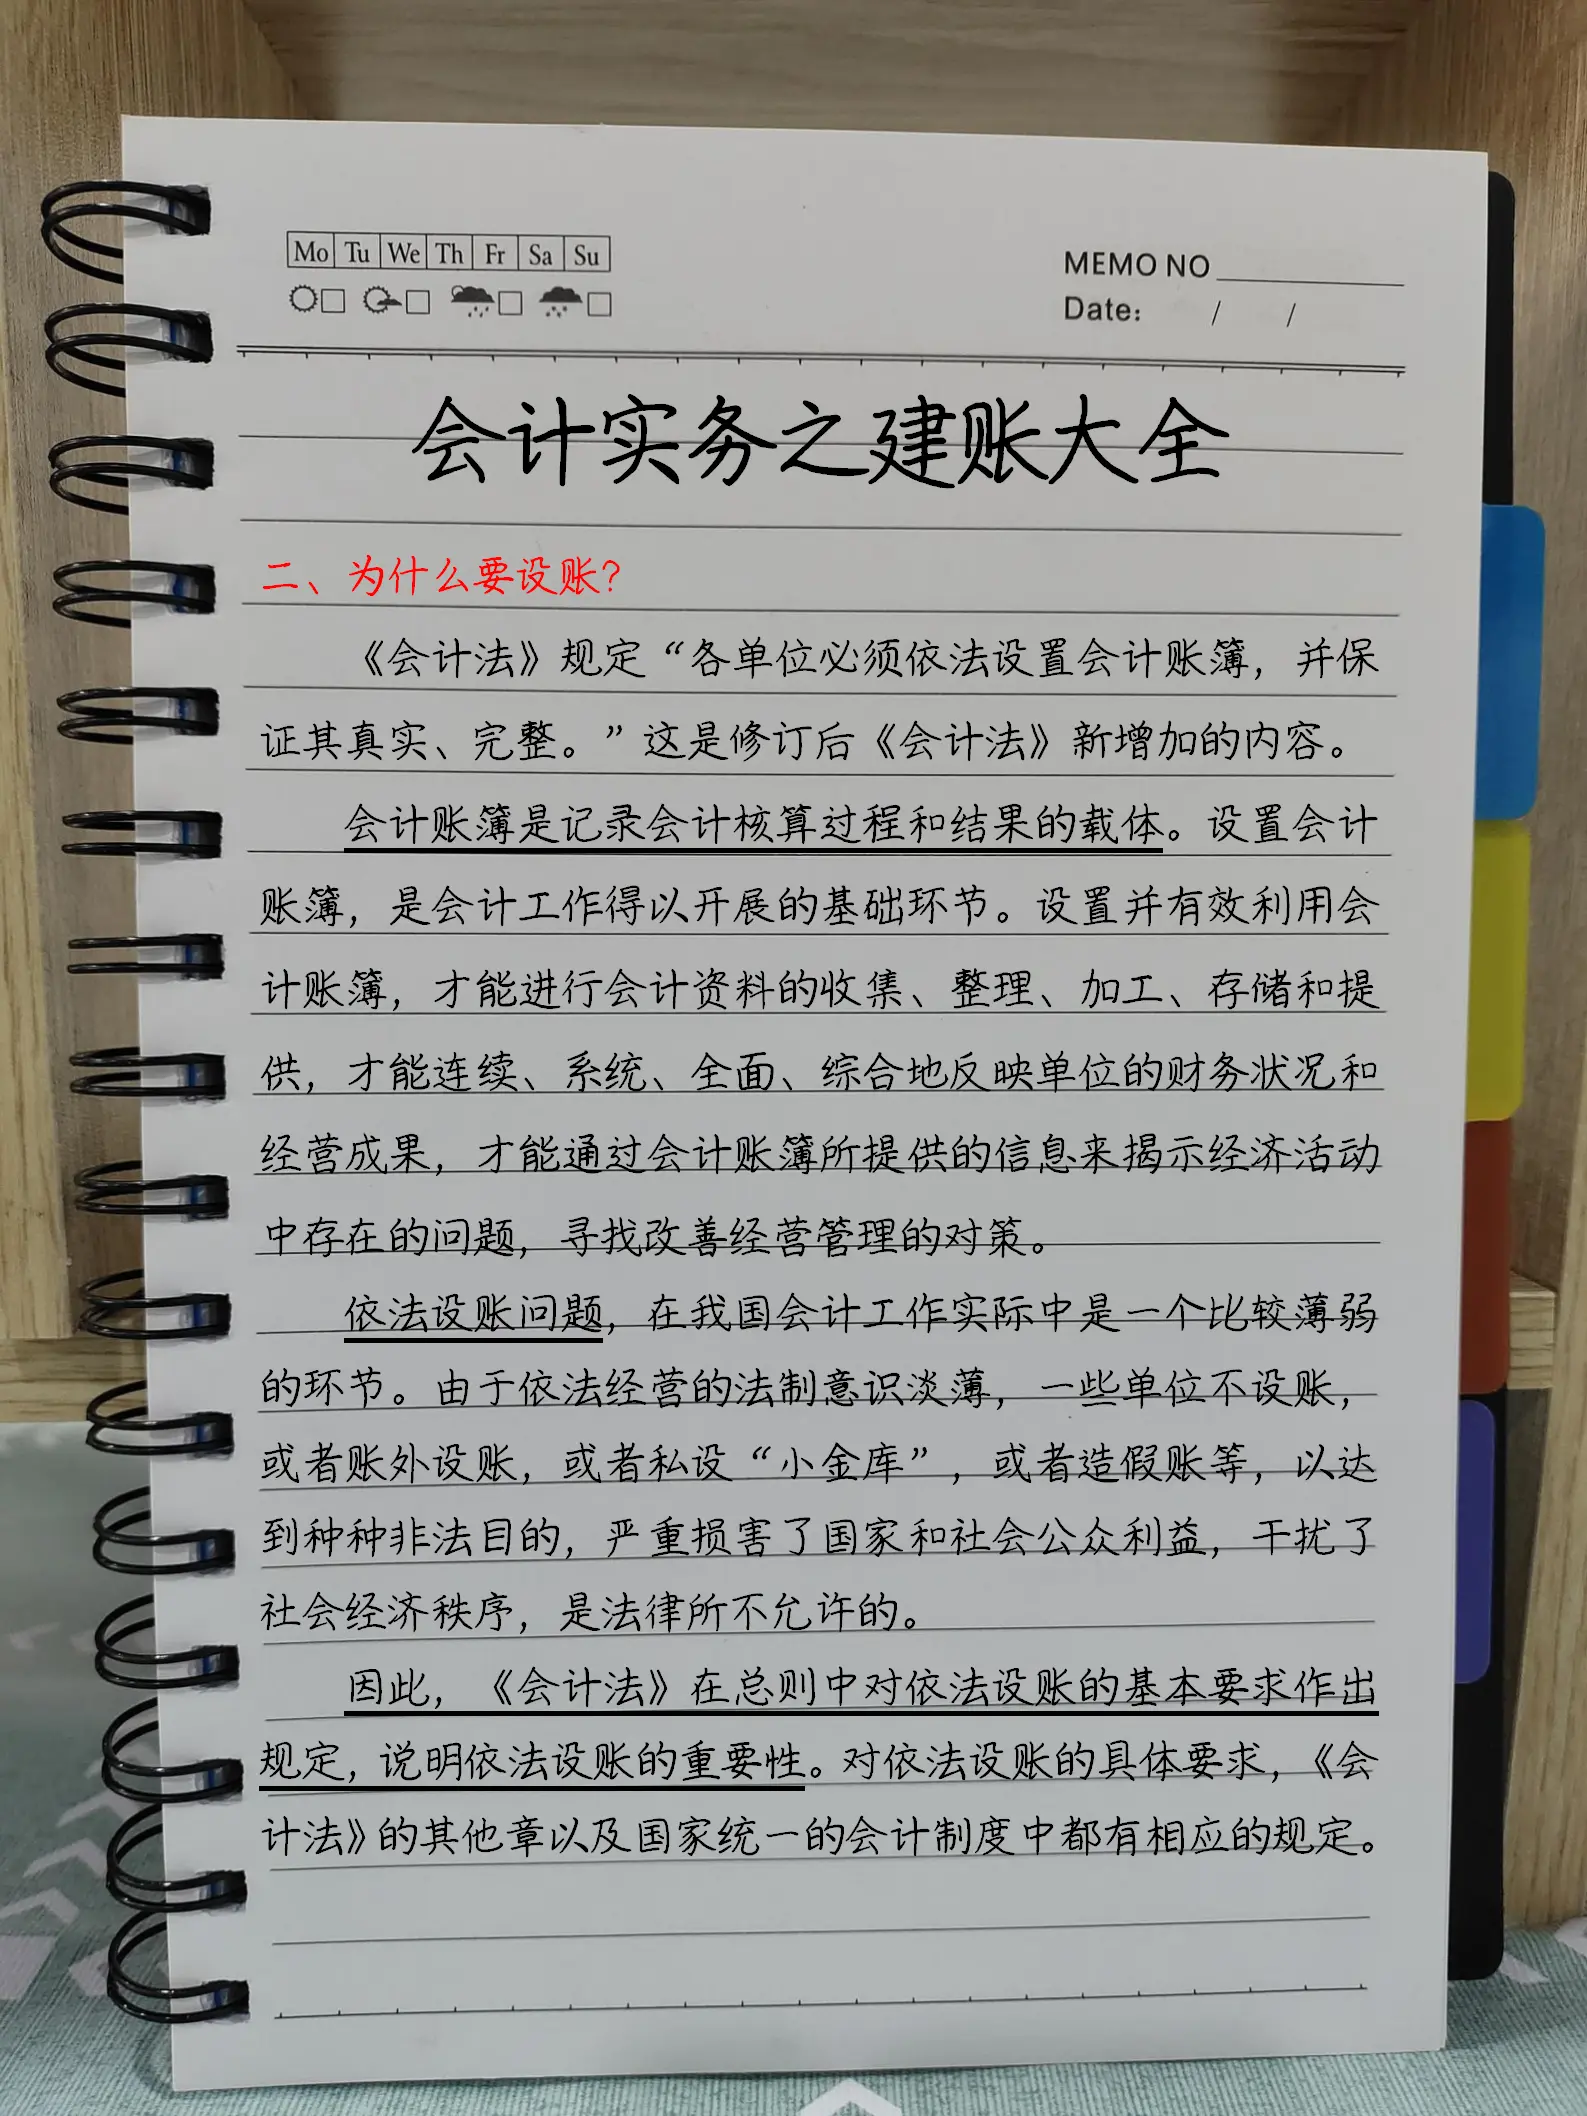 Mo Tu We Th Fr Sa Su
MEMO NO
Date: / /
会计实务之建账大全
二、为什么要设账？
《会计法》规定“各单位必须依法设置会计账簿，并保
证其真实、完整。”这是修订后《会计法》新增加的内容。
会计账簿是记录会计核算过程和结果的载体。设置会计
账簿，是会计工作得以开展的基础环节。设置并有效利用会
计账簿，才能进行会计资料的收集、整理、加工、存储和提
供，才能连续、系统、全面、综合地反映单位的财务状况和
经营成果，才能通过会计账簿所提供的信息来揭示经济活动
中存在的问题，寻找改善经营管理的对策。
依法设账问题，在我国会计工作实际中是一个比较薄弱
的环节。由于依法经营的法制意识淡薄，一些单位不设账，
或者账外设账，或者私设“小金库”，或者造假账等，以达
到种种非法目的，严重损害了国家和社会公众利益，干扰了
社会经济秩序，是法律所不允许的。
因此，《会计法》在总则中对依法设账的基本要求作出
规定，说明依法设账的重要性。对依法设账的具体要求，《会
计法》的其他章以及国家统一的会计制度中都有相应的规定。